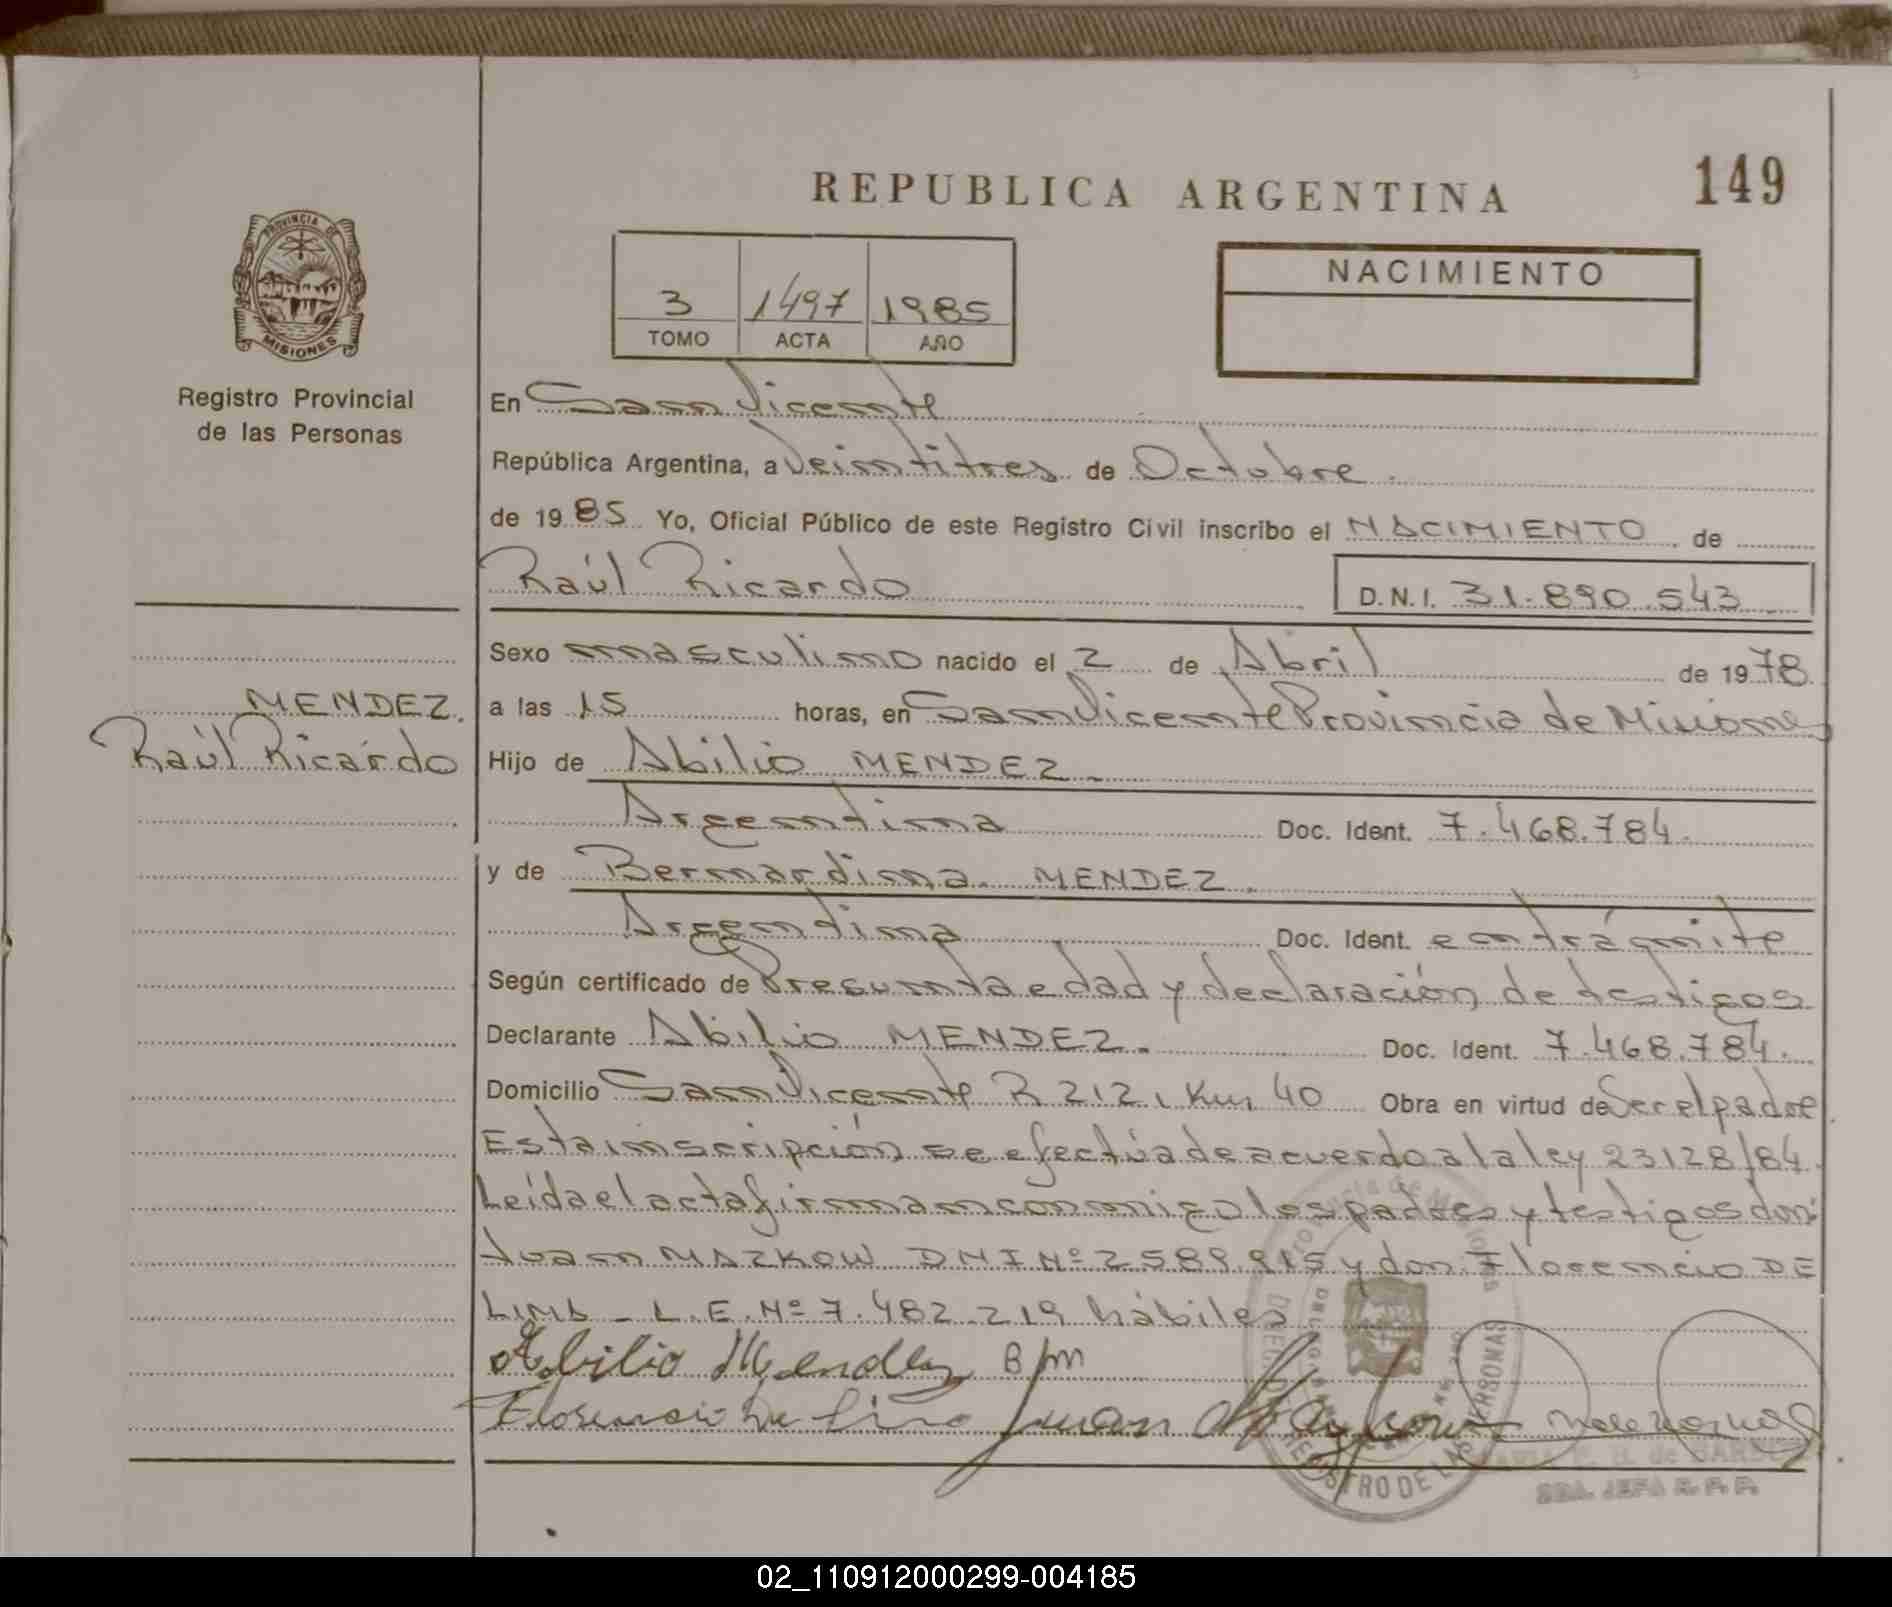 149
REPUBLICA ARGENTINA
PROVINCIA DE
MISIONES
Registro Provincial
de las Personas
3 1497 1985
TOMO ACTA AÑO
NACIMIENTO
En San Vicente
República Argentina, a Veintitres de Octubre.
de 1985 Yo, Oficial Público de este Registro Civil inscribo el NACIMIENTO de
Raúl Ricardo D.N.I. 31.890.543
Sexo masculino nacido el 2 de Abril de 1978
MENDEZ.
Raúl Ricardo
a las 15 horas, en San Vicente Provincia de Misiones
Hijo de Abilio MENDEZ.
Argentina Doc. Ident. 7.468.784.
y de Bernardina MENDEZ.
Argentina Doc. Ident. en trámite
Según certificado de Presunta edad y declaración de testigos
Declarante Abilio MENDEZ. Doc. Ident. 7.468.784.
Domicilio San Vicente R 212, Km 40 Obra en virtud de Ser el padre
Esta inscripción se efectúa de acuerdo a la ley 23128/84.
Leída el acta firman conmigo los padres y testigos don:
Juan MAZKOW DNI Nº 2589.915 y don Florencio DE
LIMA - L.E. Nº 7.482.219 hábiles
Abilio Mendez B m
Juan
REGISTRO DE LAS PERSONAS
02_110912000299-004185